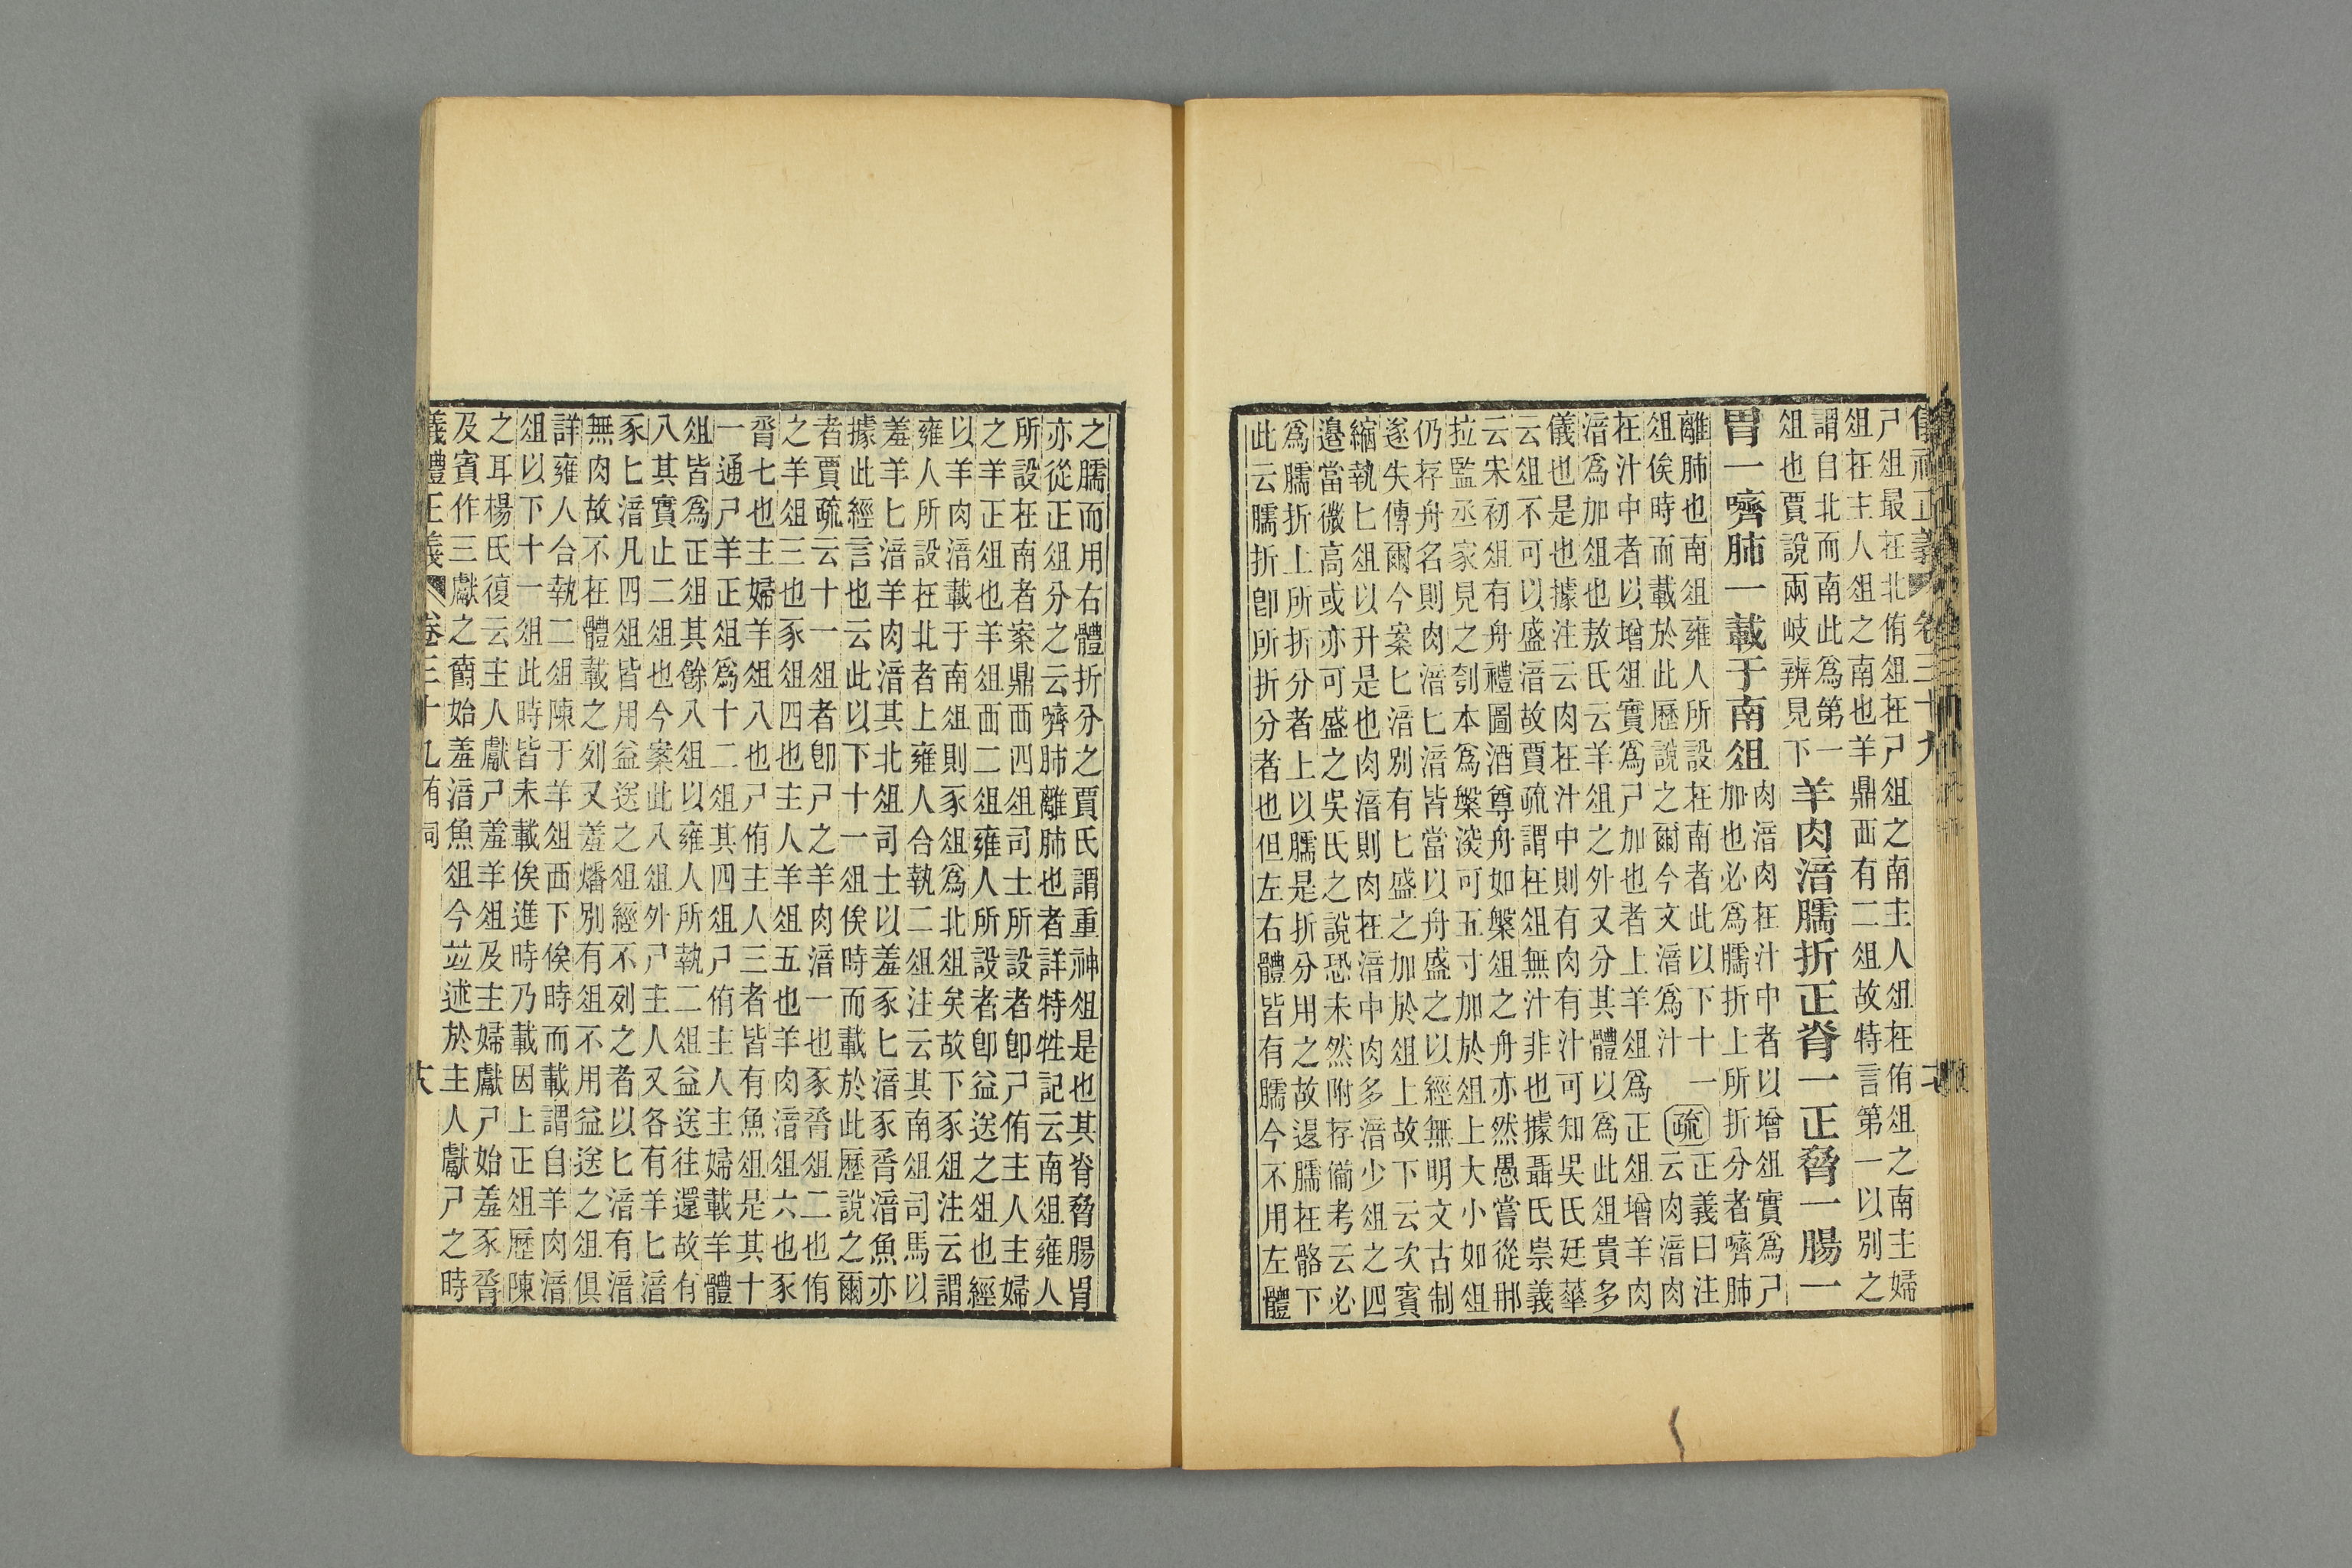 尸俎最在北侑俎在尸俎之南主人俎在侑俎之南主婦
俎在主人俎之南也羊鼎西有二俎故特言第一以別之
謂自北而南此為第一
俎也賈說兩岐辨見下
羊肉湆臑折正脊一正脅一腸一
胃一嚌肺一載于南俎
肉湆肉在汁中者以增俎實為尸
加也必為臑折上所折分者嚌肺
離肺也南俎雍人所設在南者此以下十一
俎俟時而載於此歷說之爾今文湆為汁
疏
正義曰注
云肉湆肉
在汁中者以增俎實為尸加也者上羊俎為正俎增羊肉
湆為加俎也敖氏云羊俎之外又分其體以為此俎貴多
儀也是也據注云肉在汁中則有肉有汁可知吳氏廷華
云俎不可以盛湆故賈疏謂在俎無汁非也據聶氏崇義
云宋初俎有舟禮圖酒尊舟如槃俎之舟亦然愚嘗從那
拉監丞家見之刳本為槃淡可五寸加於俎上大小如俎
仍存舟名則肉湆匕湆皆當以舟盛之以經無明文古制
遂失傳爾今案匕湆別有匕盛之加於俎上故下云次賓
縮執匕俎以升是也肉湆則肉在湆中肉多湆少俎之四
邉當微高或亦可盛之吳氏之說恐未然附存備考云必
為臑折上所折分者上以臑是折分用之故退臑在骼下
此云臑折卽所折分者也但左右體皆有臑今不用左體
之臑而用右體折分之賈氏謂重神俎是也其脊脅腸胃
亦從正俎分之云嚌肺離肺也者詳特牲記云南俎雍人
所設在南者案鼎西四俎司士所設者卽尸侑主人主婦
之羊正俎也羊俎西二俎雍人所設者卽益送之俎也經
以羊肉湆載于南俎則豕俎為北俎矣故下豕俎注云謂
雍人所設在北者上雍人合執二俎注云其南俎司馬以
羞羊匕湆羊肉湆其北俎司士以羞豕匕湆豕脀湆魚亦
據此經言也云此以下十一俎俟時而載於此歷說之爾
者賈疏云十一俎者卽尸之羊肉湆一也豕脀俎二也侑
之羊俎三也豕俎四也主人羊俎五也羊肉湆俎六也豕
脀七也主婦羊俎八也尸侑主人三者皆有魚俎是其十
一通尸羊正俎為十二俎其四俎尸侑主人主婦載羊體
俎皆為正俎其餘八俎以雍人所執二俎益送往還故有
八其實止二俎也今案此八俎外尸主人又各有羊匕湆
豕匕湆凡四俎皆用益送之俎經不列之者以匕湆有湆
無肉故不在體載之列又羞燔別有俎不用益送之俎俱
詳雍人合執二俎陳于羊俎西下俟時而載謂自羊肉湆
俎以下十一俎此時皆未載俟進時乃載因上正俎歷陳
之耳楊氏復云主人獻尸羞羊俎及主婦獻尸始羞豕脀
及賓作三獻之爵始羞湆魚俎今竝述於主人獻尸之時